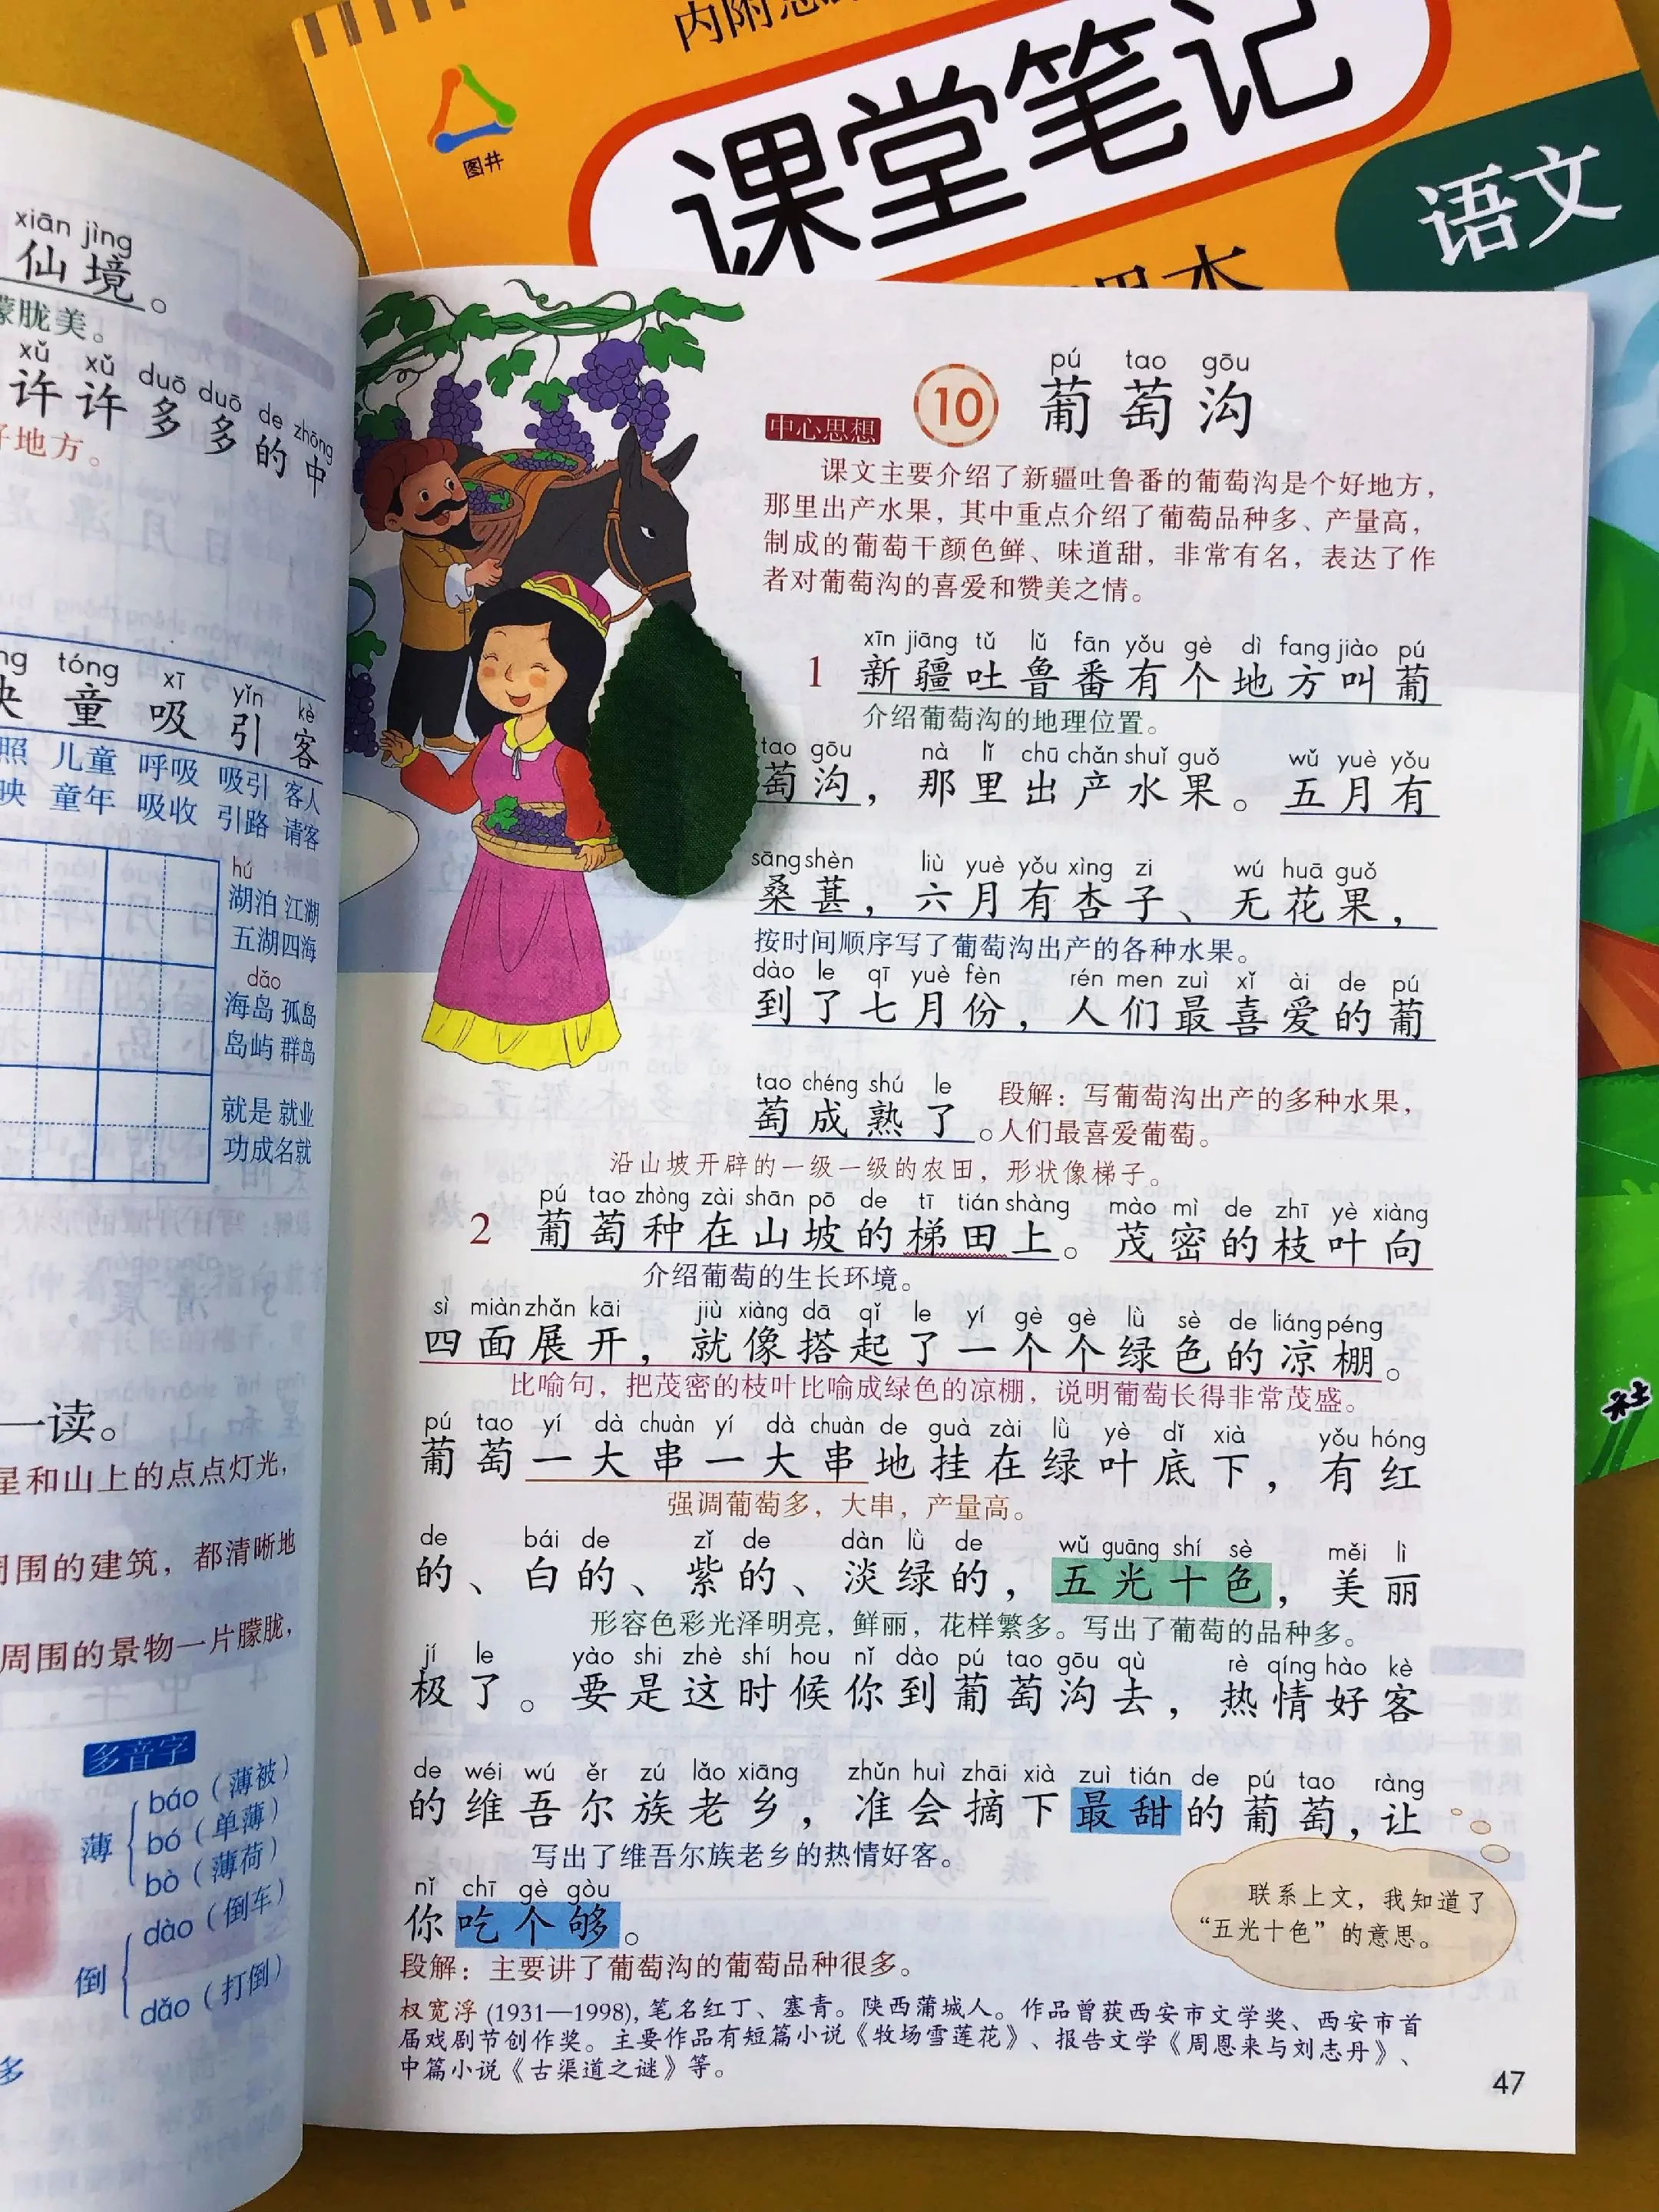 课堂笔记
语文
图井
xiān jìng
仙境。
朦胧美。
xǔ xǔ duō duō de zhōng
许许多多的中
好地方。
tóng xī yǐn kè
童吸引客
照 儿童 呼吸 吸引 客人
映 童年 吸收 引路 请客
hú
湖泊 江湖
五湖四海
dǎo
海岛 孤岛
岛屿 群岛
就是 就业
功成名就
一读。
星和山上的点点灯光,
周围的建筑，都清晰地
周围的景物一片朦胧,
多音字
薄
báo（薄被）
bó（单薄）
bò（薄荷）
倒
dào（倒车）
dǎo（打倒）
pú tao gōu
10 葡萄沟
中心思想
课文主要介绍了新疆吐鲁番的葡萄沟是个好地方,
那里出产水果，其中重点介绍了葡萄品种多、产量高,
制成的葡萄干颜色鲜、味道甜，非常有名，表达了作
者对葡萄沟的喜爱和赞美之情。
xīn jiāng tǔ lǔ fān yǒu gè dì fang jiào pú
1 新疆吐鲁番有个地方叫葡
介绍葡萄沟的地理位置。
tao gōu nà lǐ chū chǎn shuǐ guǒ wǔ yuè yǒu
萄沟，那里出产水果。五月有
sāng shèn liù yuè yǒu xìng zi wú huā guǒ
桑葚，六月有杏子、无花果，
按时间顺序写了葡萄沟出产的各种水果。
dào le qī yuè fèn rén men zuì xǐ ài de pú
到了七月份，人们最喜爱的葡
tao chéng shú le
萄成熟了。
段解：写葡萄沟出产的多种水果,
人们最喜爱葡萄。
沿山坡开辟的一级一级的农田，形状像梯子。
pú tao zhòng zài shān pō de tī tián shàng mào mì de zhī yè xiàng
2 葡萄种在山坡的梯田上。茂密的枝叶向
介绍葡萄的生长环境。
sì miàn zhǎn kāi jiù xiàng dā qǐ le yí gè gè lǜ sè de liáng péng
四面展开，就像搭起了一个个绿色的凉棚。
比喻句，把茂密的枝叶比喻成绿色的凉棚，说明葡萄长得非常茂盛。
pú tao yí dà chuàn yí dà chuàn de guà zài lǜ yè dǐ xià yǒu hóng
葡萄一大串一大串地挂在绿叶底下，有红
强调葡萄多，大串，产量高。
de bái de zǐ de dàn lǜ de wǔ guāng shí sè měi lì
的、白的、紫的、淡绿的，五光十色，美丽
形容色彩光泽明亮，鲜丽，花样繁多。写出了葡萄的品种多。
jí le yào shi zhè shí hou nǐ dào pú tao gōu qù rè qíng hào kè
极了。要是这时候你到葡萄沟去，热情好客
de wéi wú ěr zú lǎo xiāng zhǔn huì zhāi xià zuì tián de pú tao ràng
的维吾尔族老乡，准会摘下最甜的葡萄，让
写出了维吾尔族老乡的热情好客。
nǐ chī gè gòu
你吃个够。
联系上文，我知道了
“五光十色”的意思。
段解：主要讲了葡萄沟的葡萄品种很多。
权宽浮 (1931—1998), 笔名红丁、塞青。陕西蒲城人。作品曾获西安市文学奖、西安市首
届戏剧节创作奖。主要作品有短篇小说《牧场雪莲花》、报告文学《周恩来与刘志丹》、
中篇小说《古渠道之谜》等。
47